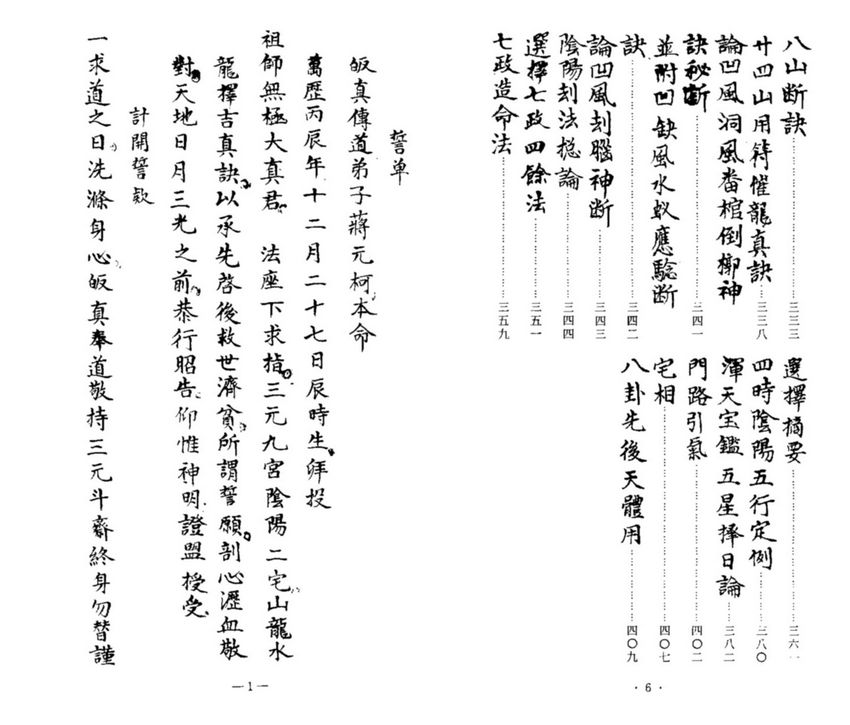 八山断訣……三三三
廿四山用符催龍真訣……三三八
論凹風洞風畨棺倒槨神
訣秘斷……三四一
並附凹缺風水蚁應驗断
訣……三四二
論凹風刻腦神断……三四三
陰陽刻法揔論……三四四
選擇七政四餘法……三五一
七政造命法……三五九
選擇摘要……三六一
四時陰陽五行定例……三八〇
渾天宝鑑五星擇日論……三八二
門路引氣……四〇二
宅相……四〇七
八卦先後天體用……四〇九
·6·
誓单
皈真傳道弟子蔣元柯本命
萬歷丙辰年十二月二十七日辰時生拜投
祖師無極大真君 法座下求指三元九宮陰陽二宅山龍水
龍擇吉真訣以承先啓後救世濟貧所謂誓願剖心瀝血敬
對天地日月三光之前恭行昭告仰惟神明證盟授受
計開誓欵
一求道之日洗滌身心皈真奉道敬持三元斗齋終身勿替謹
—1—